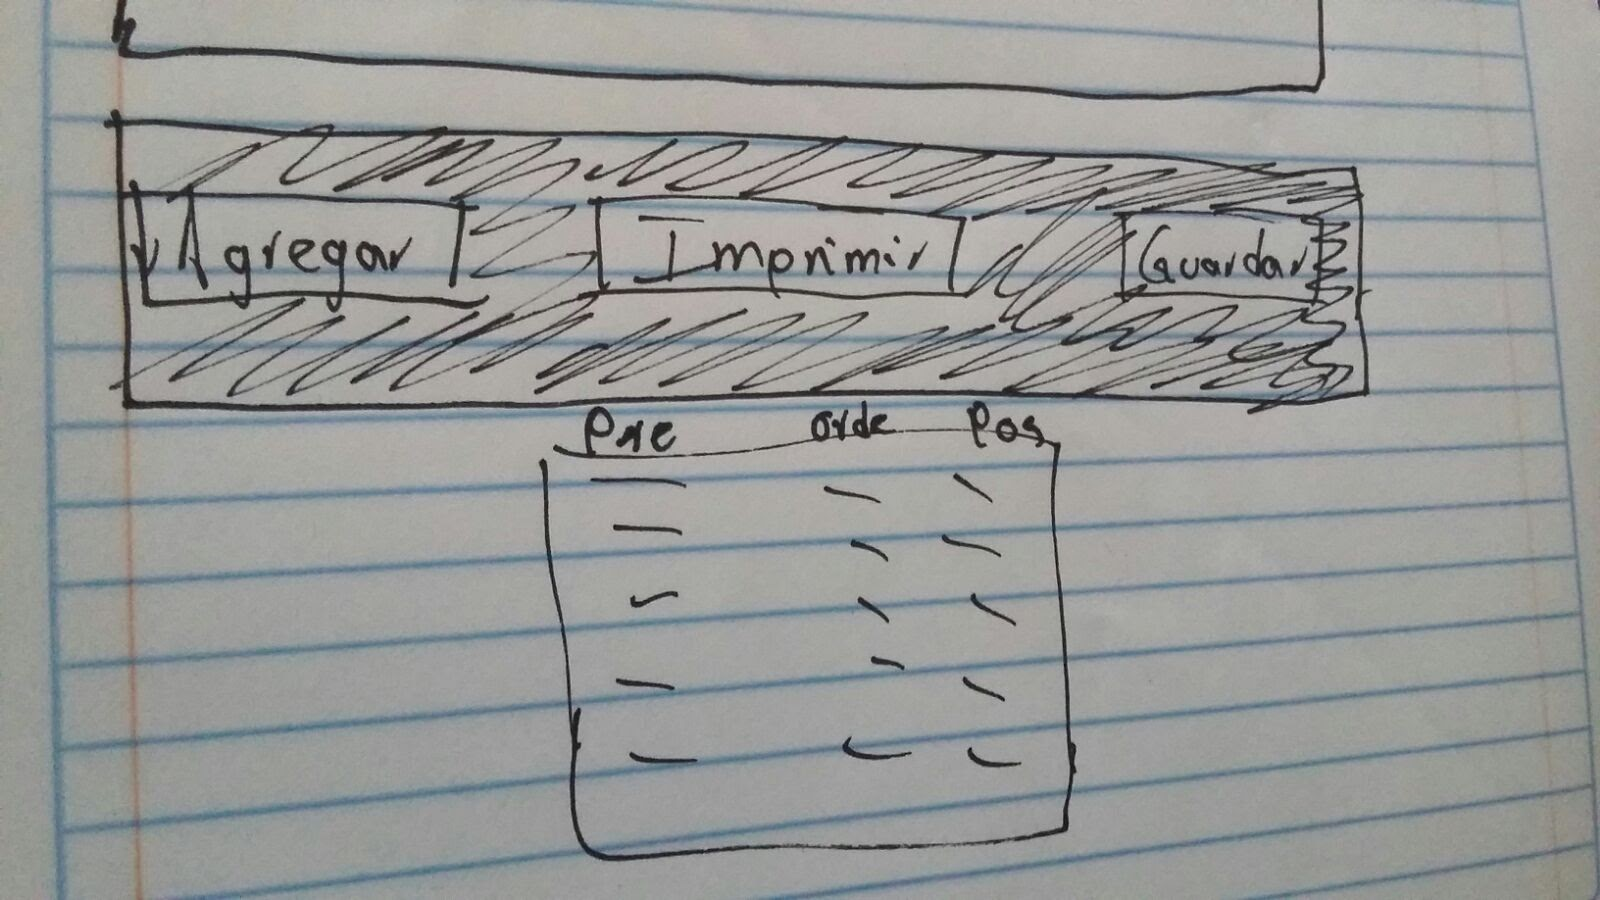 Agregar Imprimir Guardar
Pre orde Pos